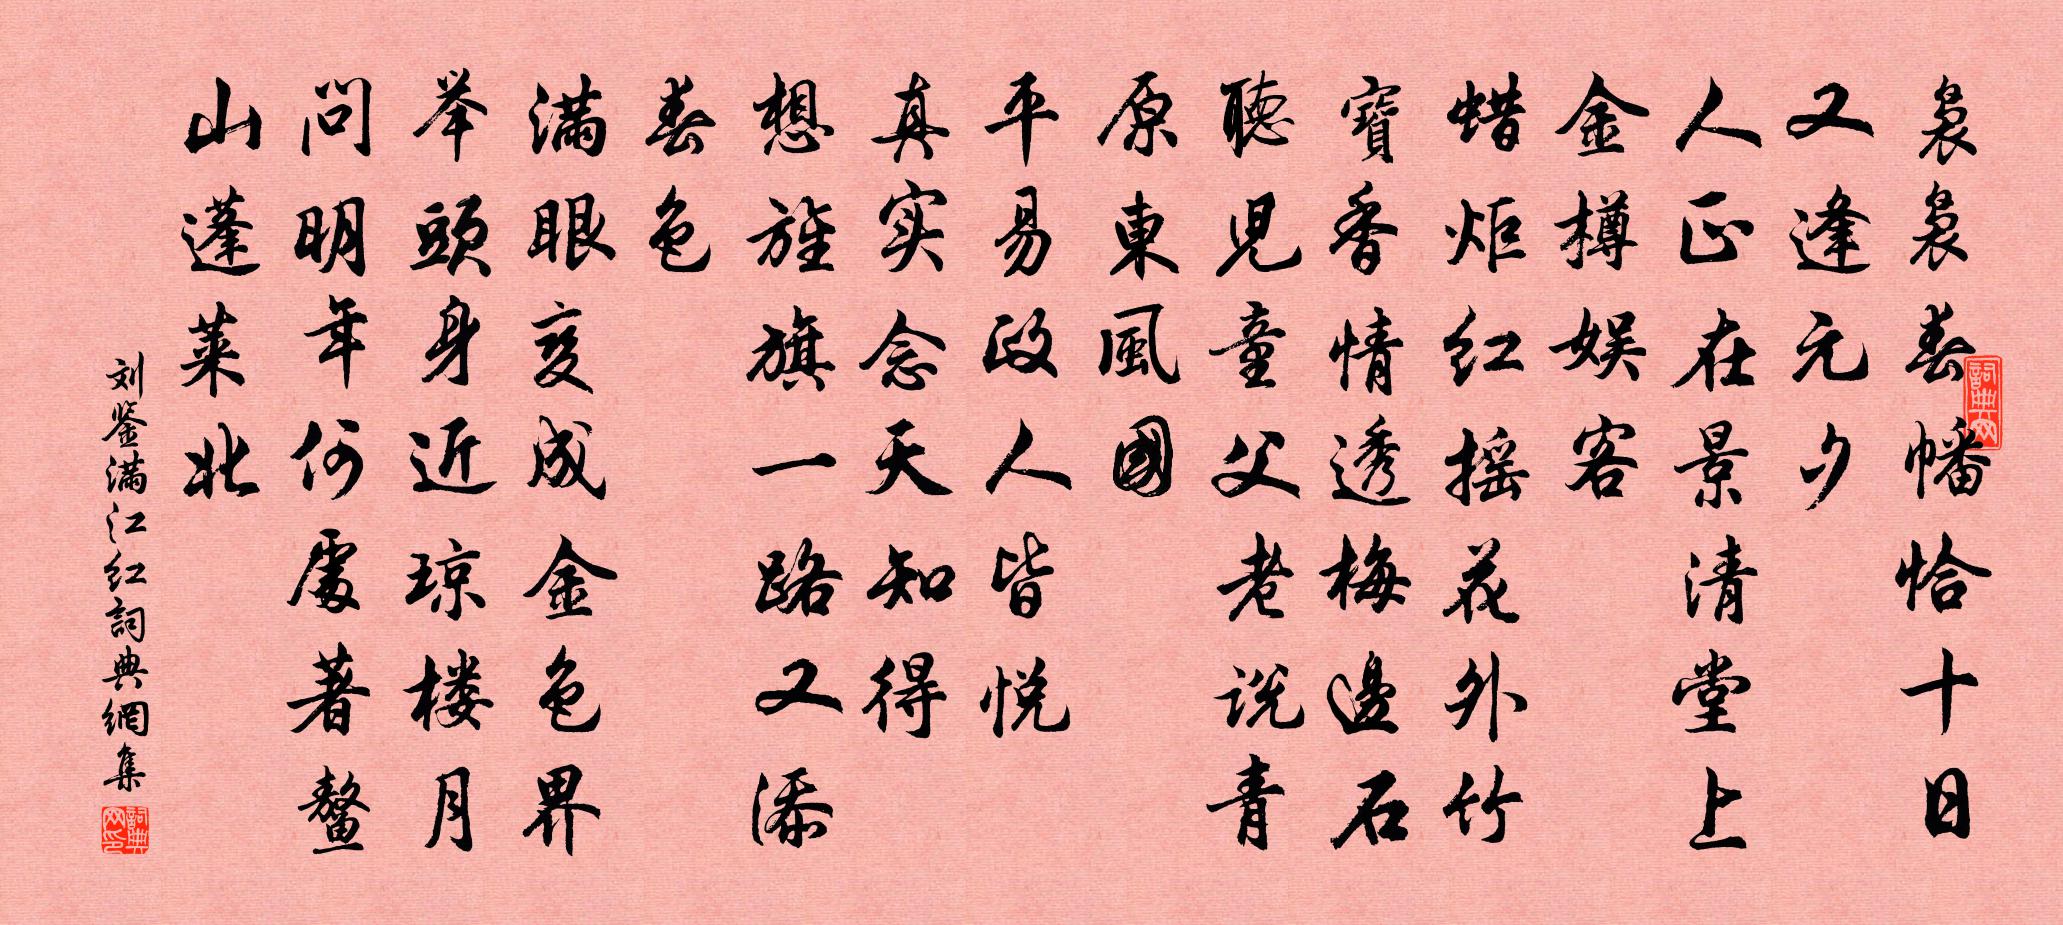 袅袅春幡恰十日
又逢元夕
人正在景清堂上
金樽娱客
蜡炬红摇花外竹
寶香情透梅邊石
聽児童父老说青
原東風國
平易政人皆悦
真实念天知得
想旌旗一路又添
春色
满眼变成金色界
举頭身近琼楼月
问明年何處著鳌
山蓬莱北
刘鉴满江红詞典網集
詞典网
詞典网印